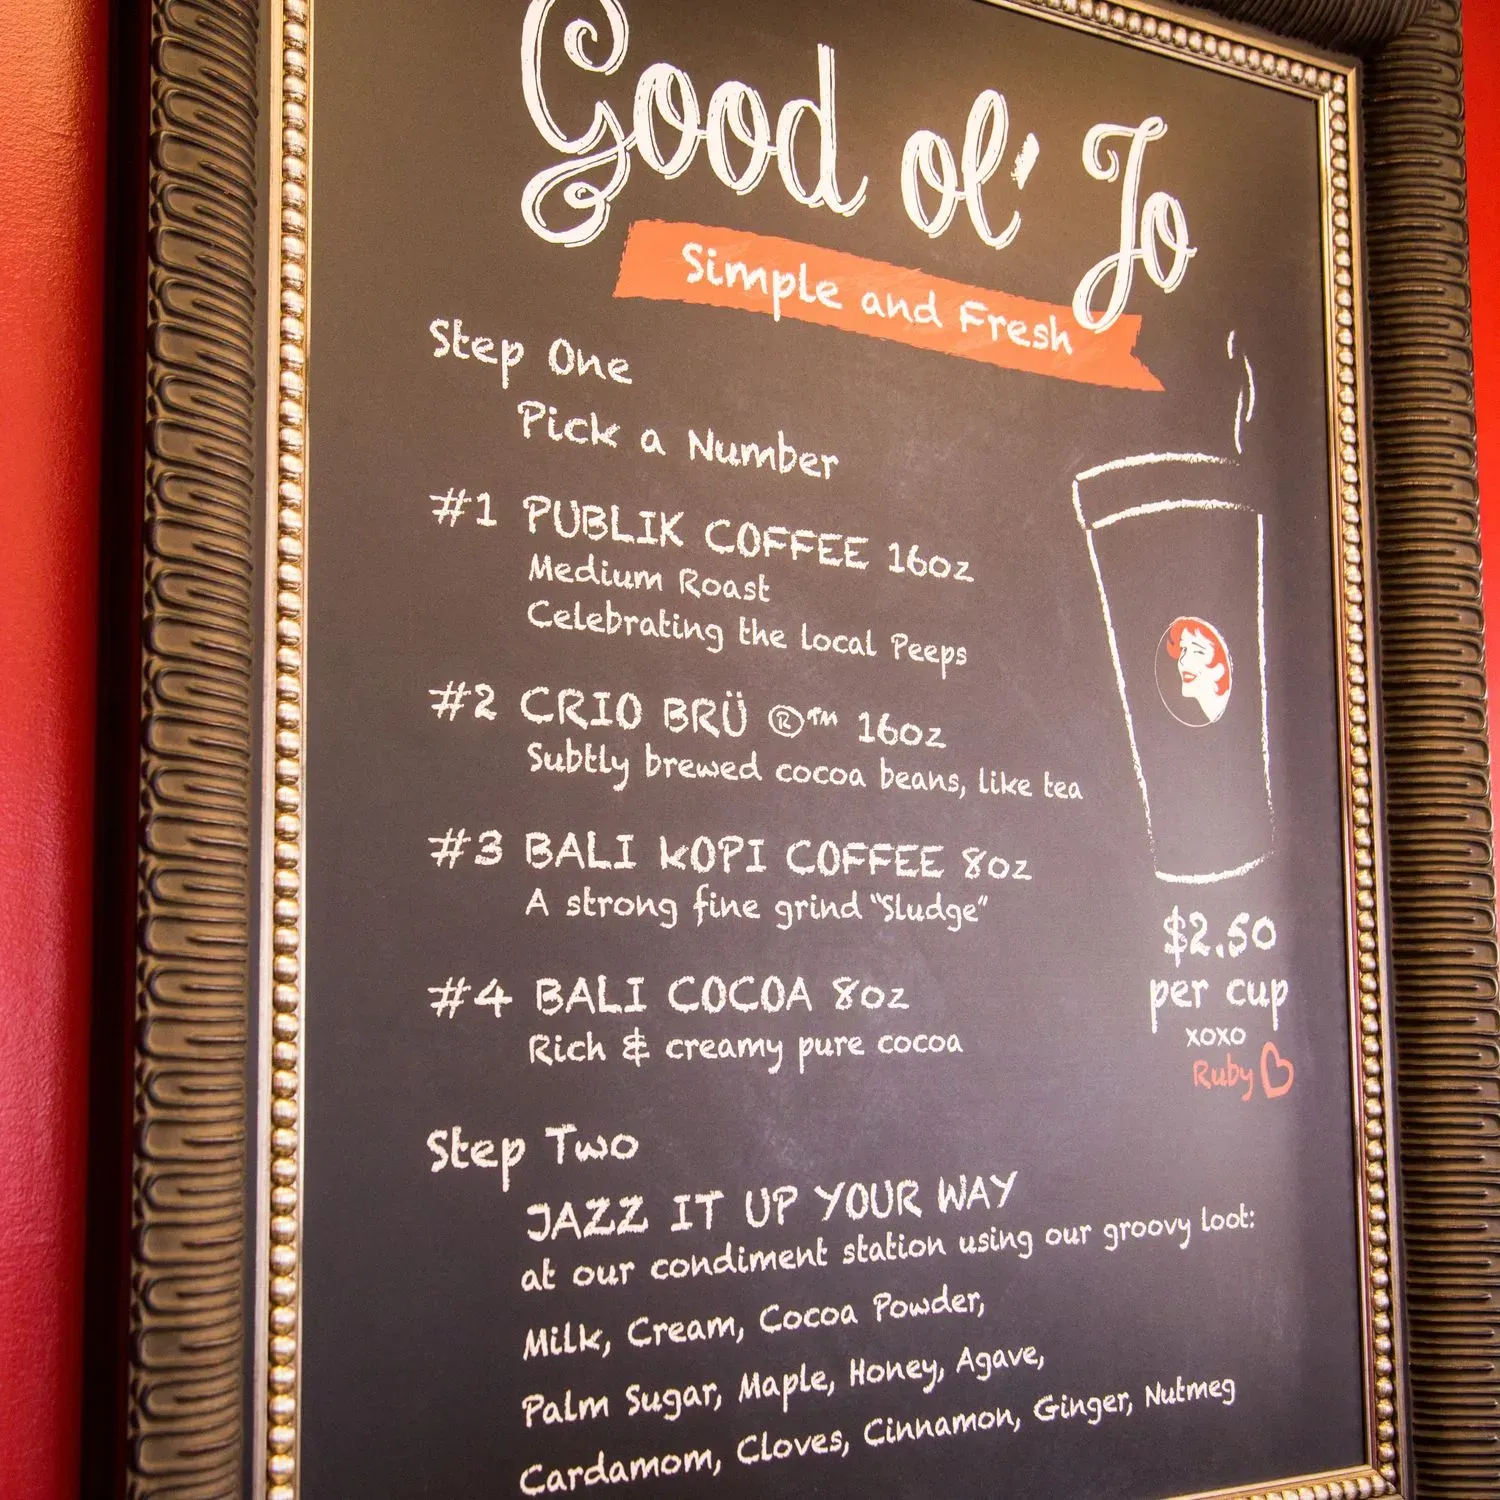 Good ol' Jo
Simple and Fresh
Step One
Pick a Number
#1 PUBLIK COFFEE 16oz
Medium Roast
Celebrating the local Peeps
#2 CRIO BRÜ ®™ 16oz
Subtly brewed cocoa beans, like tea
#3 BALI KOPI COFFEE 8oz
A strong fine grind "Sludge"
#4 BALI COCOA 8oz
Rich & creamy pure cocoa
$2.50
per cup
xoxo
Ruby
Step Two
JAZZ IT UP YOUR WAY
at our condiment station using our groovy loot:
Milk, Cream, Cocoa Powder,
Palm Sugar, Maple, Honey, Agave,
Cardamom, Cloves, Cinnamon, Ginger, Nutmeg